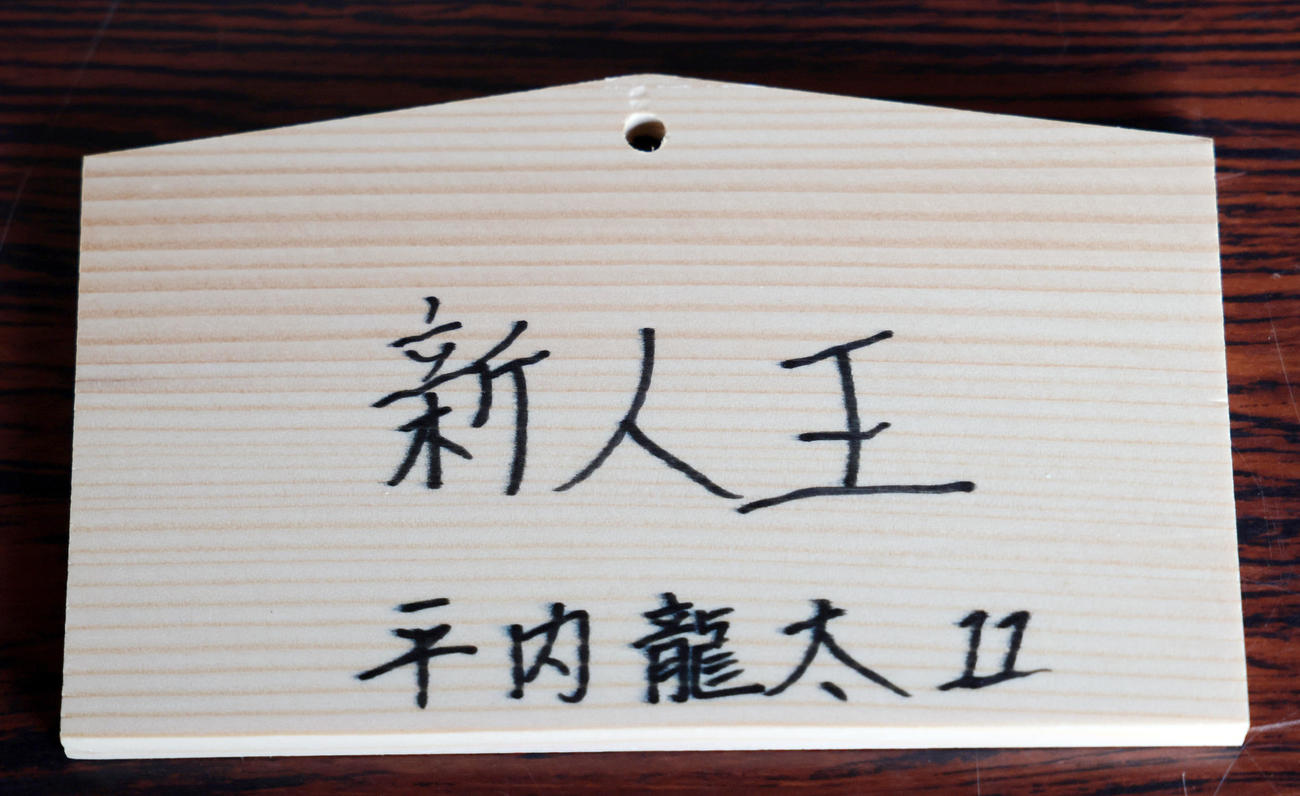 新人王
平内龍太 11